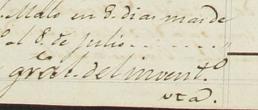 Malo en 8. dias mas de
el 8. de Julio
gral. del invent.o